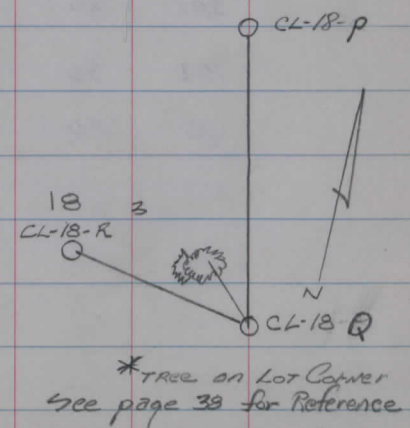 CL-18-P
18 3
CL-18-R
N
CL-18-Q
*TREE ON LOT CORNER
See page 38 for Reference